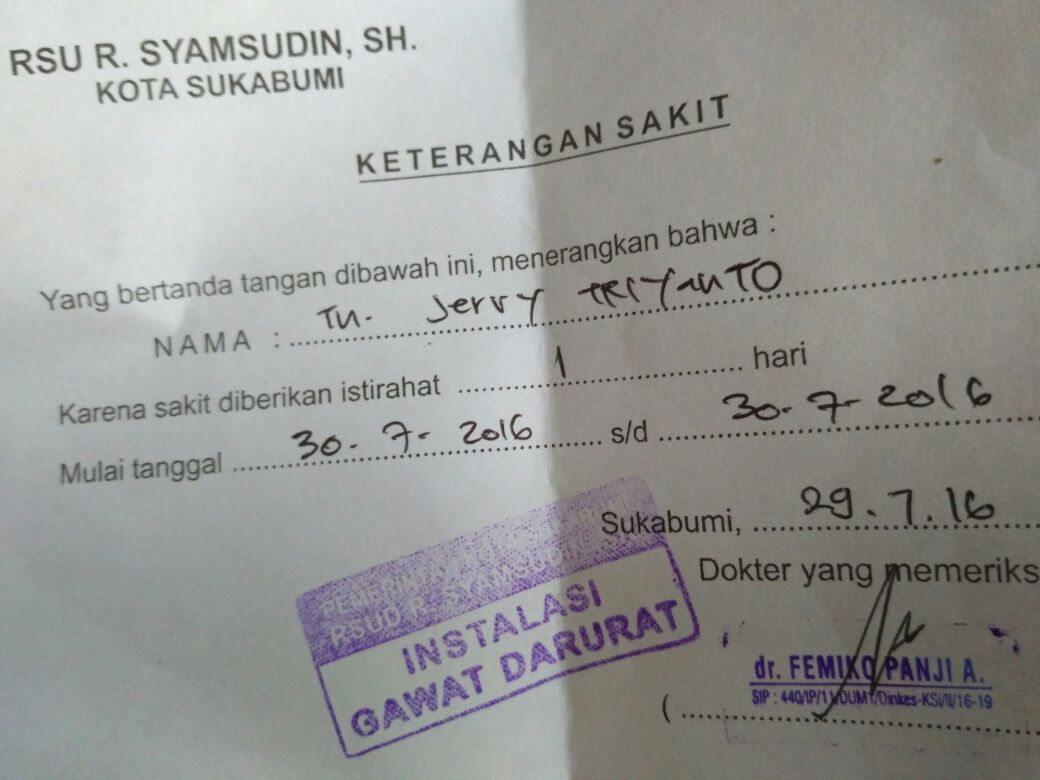 RSU R. SYAMSUDIN, SH.
KOTA SUKABUMI
KETERANGAN SAKIT
Yang bertanda tangan dibawah ini, menerangkan bahwa :
NAMA : Tn. Jerry TRIYanTO
Karena sakit diberikan istirahat 1 hari
Mulai tanggal 30-7-2016 s/d 30-7-2016
Sukabumi, 29.7.16
Dokter yang memeriks
RSUD R. SYAMSUDIN
INSTALASI
GAWAT DARURAT
dr. FEMIKO PANJI A.
(